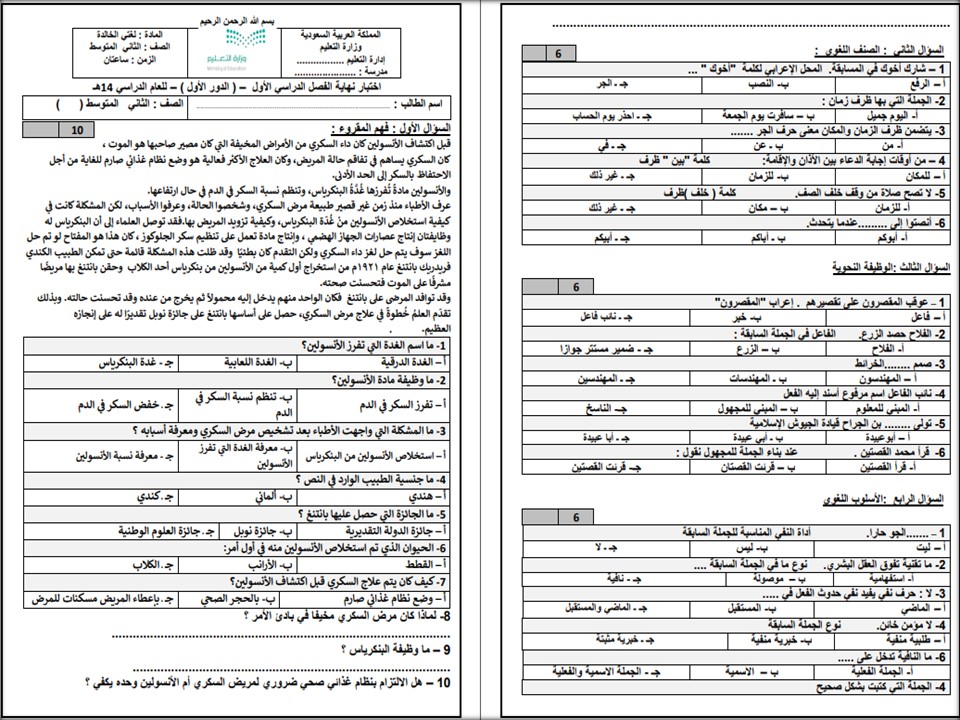 بسم الله الرحمن الرحيم
المملكة العربية السعودية
وزارة التعليم
إدارة التعليم ..................
مدرسة : ......................
وزارة التعليم
Ministry of Education
المادة : لغتي الخالدة
الصف : الثاني المتوسط
الزمن : ساعتان
اختبار نهاية الفصل الدراسي الأول – ( الدور الأول ) – للعام الدراسي 14هـ
اسم الطالب : ..................................................
الصف : الثاني المتوسط ( )
السؤال الأول : فهم المقروء :
10
قبل اكتشاف الأنسولين كان داء السكري من الأمراض المخيفة التي كان مصير صاحبها هو الموت ،
كان السكري يساهم في تفاقم حالة المريض، وكان العلاج الأكثر فعالية هو وضع نظام غذائي صارم للغاية من أجل
الاحتفاظ بالسكر إلى الحد الأدنى.
والأنسولين مادةٌ تُفرزها غُدَّةُ البنكرياس، وتنظم نسبة السكر في الدم في حال ارتفاعها.
عرف الأطباء منذ زمن غير قصير طبيعة مرض السكري، وشخصوا الحالة، وعرفوا الأسباب، لكن المشكلة كانت في
كيفية استخلاص الأنسولين منْ غُدَّة البنكرياس، وكيفية تزويد المريض بها.فقد توصل العلماء إلى أن البنكرياس له
وظايفتان إنتاج عصارات الجهاز الهضمي ، وإنتاج مادة تعمل على تنظيم سكر الجلوكوز ، كان هذا هو المفتاح لو تم حل
اللغز سوف يتم حل لغز داء السكري ولكن التقدم كان بطئيًا وقد ظلت هذه المشكلة قائمة حتى تمكن الطبيب الكندي
فريدريك بانتنغ عام ١٩٢١م من استخراج أول كمية من الأنسولين من بنكرياس أحد الكلاب وحقن بانتنغ بها مريضًا
مشرفًا على الموت فتحسنت صحته.
وقد توافد المرضى على بانتنغ فكان الواحد منهم يدخل إليه محمولاً ثم يخرج من عنده وقد تحسنت حالته. وبذلك
تقدّم العلمُ خُطوةً في علاج مرض السكري، حصل على أساسها بانتنغ على جائزة نوبل تقديرًا له على إنجازه
العظيم.
1- ما اسم الغدة التي تفرز الأنسولين؟
أ – الغدة الدرقية ب- الغدة اللعابية جـ - غدة البنكرياس
2- ما وظيفة مادة الأنسولين؟
أ – تفرز السكر في الدم ب- تنظم نسبة السكر في الدم جـ - خفض السكر في الدم
3- ما المشكلة التي واجهت الأطباء بعد تشخيص مرض السكري ومعرفة أسبابه ؟
أ – استخلاص الأنسولين من البنكرياس ب- معرفة الغدة التي تفرز الأنسولين جـ - معرفة نسبة الأنسولين
4- ما جنسية الطبيب الوارد في النص ؟
أ – هندي ب- ألماني جـ - كندي
5- ما الجائزة التي حصل عليها بانتنغ ؟
أ – جائزة الدولة التقديرية ب- جائزة نوبل جـ - جائزة العلوم الوطنية
6- الحيوان الذي تم استخلاص الأنسولين منه في أول أمر:
أ – القطط ب- الأرانب جـ - الكلاب
7- كيف كان يتم علاج السكري قبل اكتشاف الأنسولين؟
أ – وضع نظام غذائي صارم ب- بالحجر الصحي جـ - بإعطاء المريض مسكنات للمرض
8- لماذا كان مرض السكري مخيفا في بادئ الأمر ؟
................................................................
9 – ما وظيفة البنكرياس ؟
................................................................
10 – هل الالتزام بنظام غذائي صحي ضروري لمريض السكري أم الأنسولين وحده يكفي ؟
................................................................
السؤال الثاني : الصنف اللغوي :
6
1 – شارك أخوك في المسابقة. المحل الإعرابي لكلمة "أخوك " ...
أ – الرفع ب- النصب جـ - الجر
2- الجملة التي بها ظرف زمان :
أ- اليوم جميل ب – سافرت يوم الجمعة جـ - احذر يوم الحساب
3- يتضمن ظرف الزمان والمكان معنى حرف الجر .......
أ - من ب - عن جـ – في
4 – من أوقات إجابة الدعاء بين الأذان والإقامة: كلمة "بين " ظرف
أ – للمكان ب- للزمان جـ - غير ذلك
5- لا تصح صلاة من وقف خلف الصف. كلمة ( خلف )ظرف
أ- للزمان ب – مكان جـ - غير ذلك
6- أنصتوا إلى .........عندما يتحدث.
أ- أبوكم ب – أباكم جـ - أبيكم
السؤال الثالث :الوظيفة النحوية
6
1 – عوقب المقصرون على تقصيرهم . إعراب "المقصرون"
أ – فاعل ب- خبر جـ - نائب فاعل
2- الفلاح حصد الزرع. الفاعل في الجملة السابقة :
أ- الفلاح ب – الزرع جـ - ضمير مستتر جوازا
3- صمم ........الخرائط
أ – المهندسون ب - المهندسات جـ - المهندسين
4- نائب الفاعل اسم مرفوع أسند إليه الفعل
أ- المبني للمعلوم ب – المبني للمجهول جـ – الناسخ
5- تولى ........ بن الجراح قيادة الجيوش الإسلامية
أ – أبوعبيدة ب - أبي عبيدة جـ - أبا عبيدة
6- قرأ محمد القصتين . عند بناء الجملة للمجهول نقول :
أ- قرأ القصتين ب – قرئت القصتان جـ - قرئت القصتين
السؤال الرابع :الأسلوب اللغوي
6
1 – .......الجو حارا. أداة النفي المناسبة للجملة السابقة
أ – ليت ب- ليس جـ - لا
2- ما تقنية تفوق العقل البشري. نوع ما في الجملة السابقة ....
أ- استفهامية ب – موصولة جـ - نافية
3- لا : حرف نفي يفيد نفي حدوث الفعل في .....
أ – الماضي ب- المستقبل جـ - الماضي والمستقبل
4- لا مؤمن خائن. نوع الجملة السابقة
أ – طلبية منفية ب- خبرية منفية جـ - خبرية مثبتة
6- ما النافية تدخل على .....
أ- الجملة الفعلية ب – الاسمية جـ - الجملة الاسمية والفعلية
4- الجملة التي كتبت بشكل صحيح